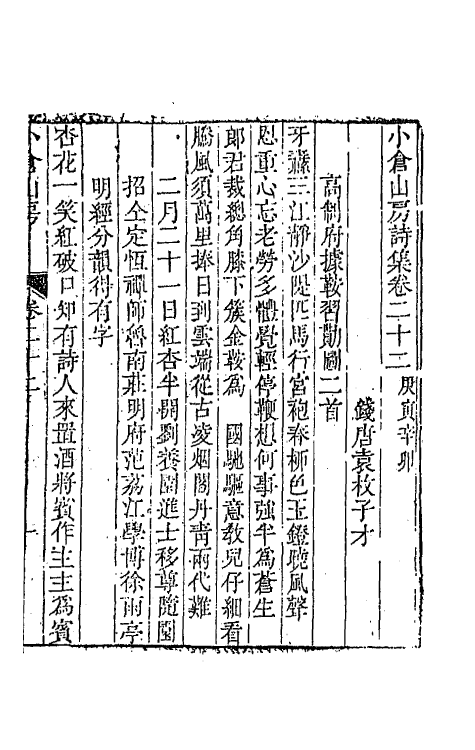 小倉山房詩集卷二十二 庚寅辛卯
錢唐袁枚子才
高制府據鞍習勩圖二首
牙纛三江靜沙隄匹馬行宮袍春柳色玉鐙曉風聲
恩重心忘老勞多體覺輕停鞭想何事強半為蒼生
郎君裁總角膝下簇金鞍為 國馳驅意教兒仔細看
勝風須萬里捧日到雲端從古凌烟閣丹青兩代難
二月二十一日紅杏半開劉養園進士移尊隨園
招仝定恆禪師魯南莊明府范荔江學博徐雨亭
明經分韻得有字
杏花一笑紅破口知有詩人來置酒將賓作主主為賓
小倉山房 卷二十二 一